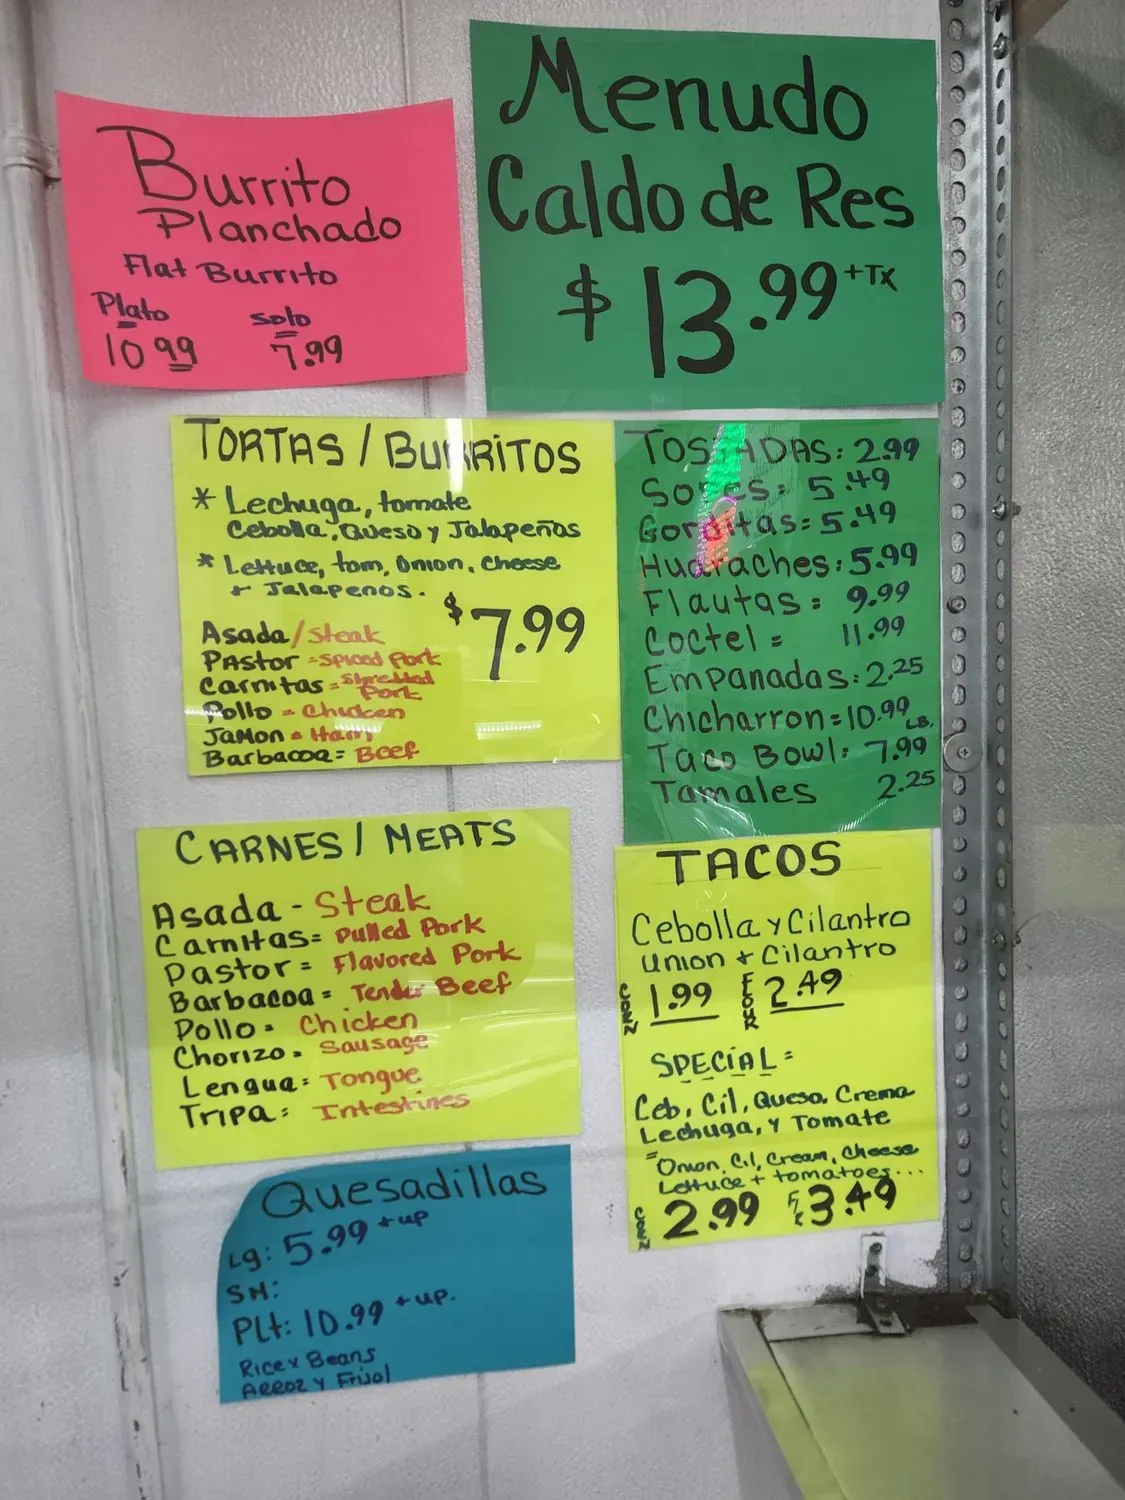 Burrito
Planchado
Flat Burrito
Plato Solo
10 99 7.99
Menudo
Caldo de Res
$ 13.99 +TX
TORTAS / BURRITOS
* Lechuga, tomate
Cebolla, Queso y Jalapeños
* Lettuce, tom, Onion, cheese
+ Jalapenos.
$7.99
Asada/Steak
PAStor =Spiced Pork
Carnitas=Shredded
Pork
Pollo = Chicken
JaMon = Ham
Barbacoa= Beef
TOSTADAS: 2.99
Sopes= 5.49
Gorditas=5.49
Huaraches:5.99
Flautas= 9.99
Coctel= 11.99
Empanadas:2.25
Chicharron=10.99 LB.
Taco Bowl: 7.99
Tamales 2.25
CARNES / MEATS
Asada - Steak
Carnitas= Pulled Pork
Pastor= Flavored Pork
Barbacoa= Tender Beef
Pollo= Chicken
Chorizo= Sausage
Lengua= Tongue
Tripa: Intestines
TACOS
Cebolla y Cilantro
Union + Cilantro
CORN 1.99 FLOUR 2.49
SPECIAL=
Ceb, Cil, Queso, Crema
Lechuga, y Tomate
=Onion, Cil, Cream, Cheese
Lettuce + tomatoes...
CORN 2.99 FLR 3.49
Quesadillas
Lg: 5.99 + up
SM:
PLt: 10.99 + up.
Rice y Beans
ARROZ y Frijol